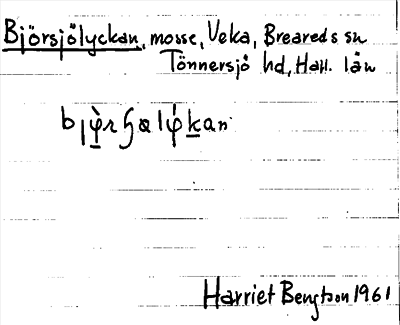 Björsjölyckan, mosse, Veka, Breareds sn
Tönnersjö hd, Hall. län
Harriet Bengtson 1961